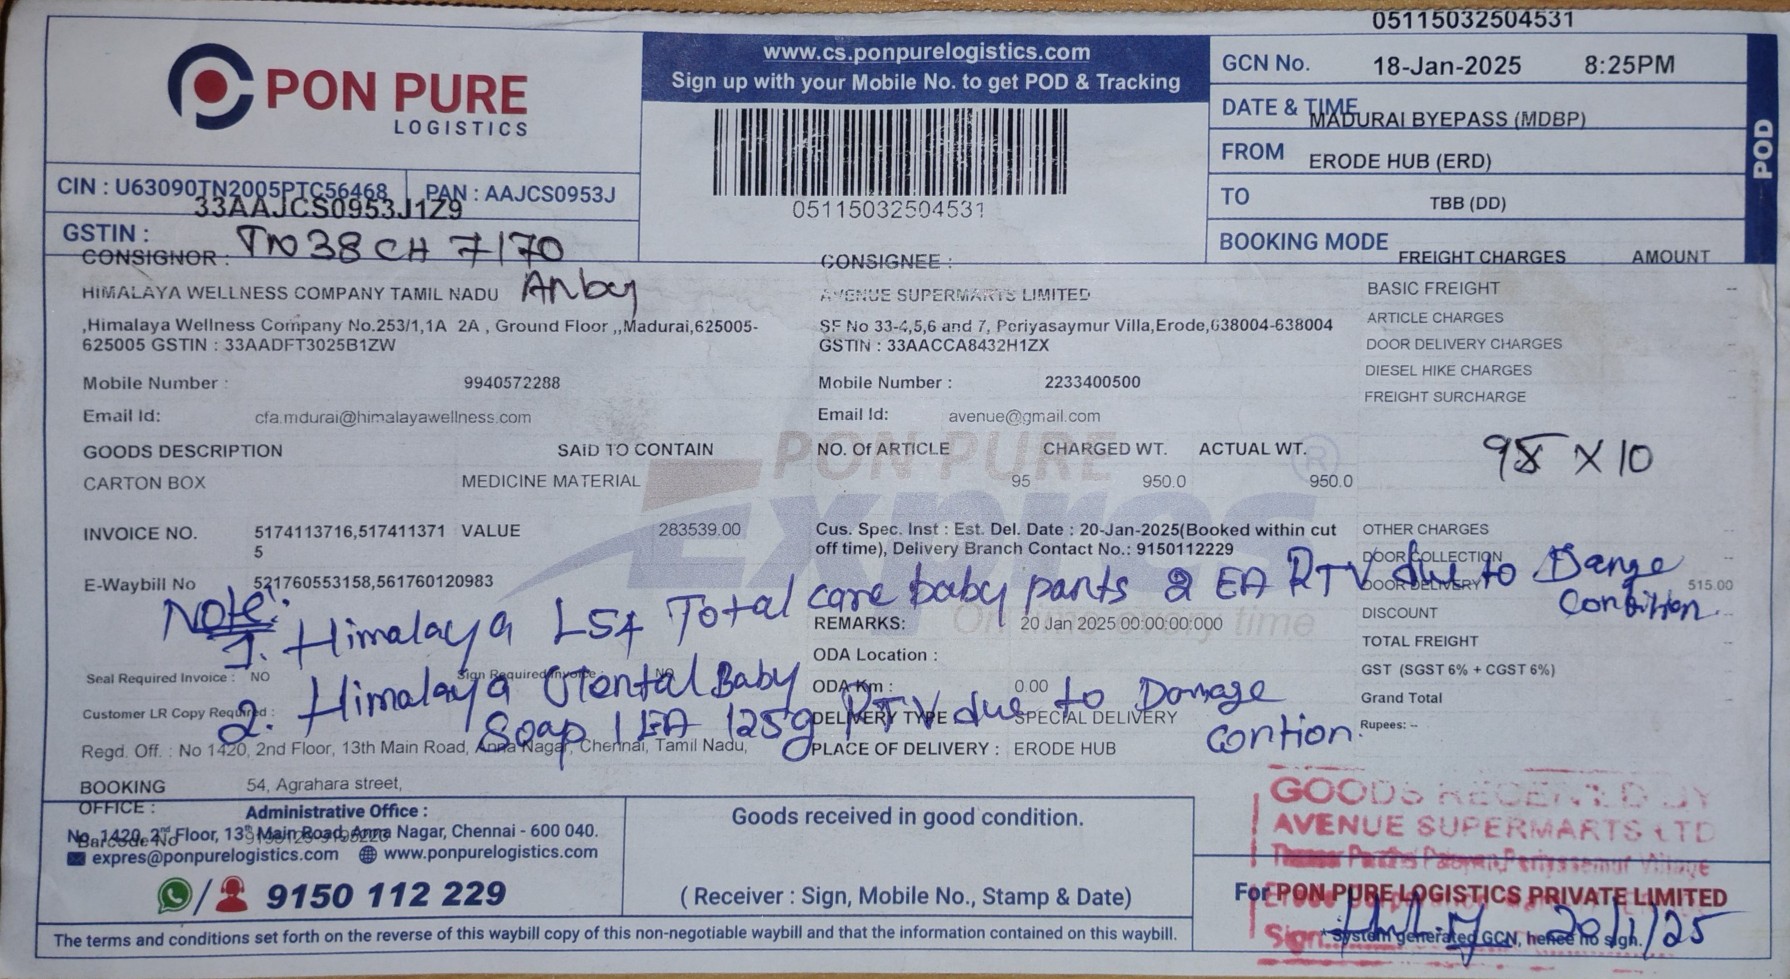 05115032504531
PON PURE
LOGISTICS
www.cs.ponpurelogistics.com
Sign up with your Mobile No. to get POD & Tracking
05115032504531
GCN No. 18-Jan-2025 8:25PM
DATE & TIME MADURAI BYEPASS (MDBP)
FROM ERODE HUB (ERD)
TO TBB (DD)
BOOKING MODE
POD
CIN : U63090TN2005PTC56468 PAN : AAJCS0953J
33AAJCS0953J1Z9
GSTIN :
TN 38 CH 7170
CONSIGNOR :
HIMALAYA WELLNESS COMPANY TAMIL NADU
,Himalaya Wellness Company No.253/1,1A 2A , Ground Floor ,,Madurai,625005-
625005 GSTIN : 33AADFT3025B1ZW
Mobile Number : 9940572288
Email Id: cfa.mdurai@himalayawellness.com
CONSIGNEE :
AVENUE SUPERMARTS LIMITED
SF No 33-4,5,6 and 7, Periyasaymur Villa,Erode,638004-638004
GSTIN : 33AACCA8432H1ZX
Mobile Number : 2233400500
Email Id: avenue@gmail.com
FREIGHT CHARGES AMOUNT
BASIC FREIGHT --
ARTICLE CHARGES
DOOR DELIVERY CHARGES
DIESEL HIKE CHARGES
FREIGHT SURCHARGE
PON PURE
Expres
On time every time
GOODS DESCRIPTION SAID TO CONTAIN NO. Of ARTICLE CHARGED WT. ACTUAL WT.
CARTON BOX MEDICINE MATERIAL 95 950.0 950.0
X 10
INVOICE NO. 5174113716,517411371 VALUE 283539.00
5
E-Waybill No 521760553158,561760120983
Cus. Spec. Inst : Est. Del. Date : 20-Jan-2025(Booked within cut
off time), Delivery Branch Contact No.: 9150112229
OTHER CHARGES --
DOOR COLLECTION
DOOR DELIVERY 515.00
DISCOUNT
TOTAL FREIGHT
GST (SGST 6% + CGST 6%)
Grand Total
Rupees: --
Note:
1. Himalaya Total care baby pants 2 EA RTV due to
Condition.
2. Himalaya Baby
Soap 1 EA 125g RTV due to Damage
contion.
REMARKS: 20 Jan 2025 00:00:00:000
ODA Location :
ODA Km : 0.00
DELIVERY TYPE SPECIAL DELIVERY
PLACE OF DELIVERY : ERODE HUB
Seal Required Invoice : NO Sign Required Invoice : NO
Customer LR Copy Required :
Regd. Off. : No 1420, 2nd Floor, 13th Main Road, Anna Nagar, Chennai, Tamil Nadu,
BOOKING 54, Agrahara street,
OFFICE :
Barcode No
Administrative Office :
No. 1420, 2nd Floor, 13th Main Road, Anna Nagar, Chennai - 600 040.
expres@ponpurelogistics.com www.ponpurelogistics.com
/ 9150 112 229
Goods received in good condition.
( Receiver : Sign, Mobile No., Stamp & Date)
GOODS RECEIVED BY
AVENUE SUPERMARTS LTD
For PON PURE LOGISTICS PRIVATE LIMITED
Sign.
*System generated GCN, hence no sign.
20/1/25
The terms and conditions set forth on the reverse of this waybill copy of this non-negotiable waybill and that the information contained on this waybill.